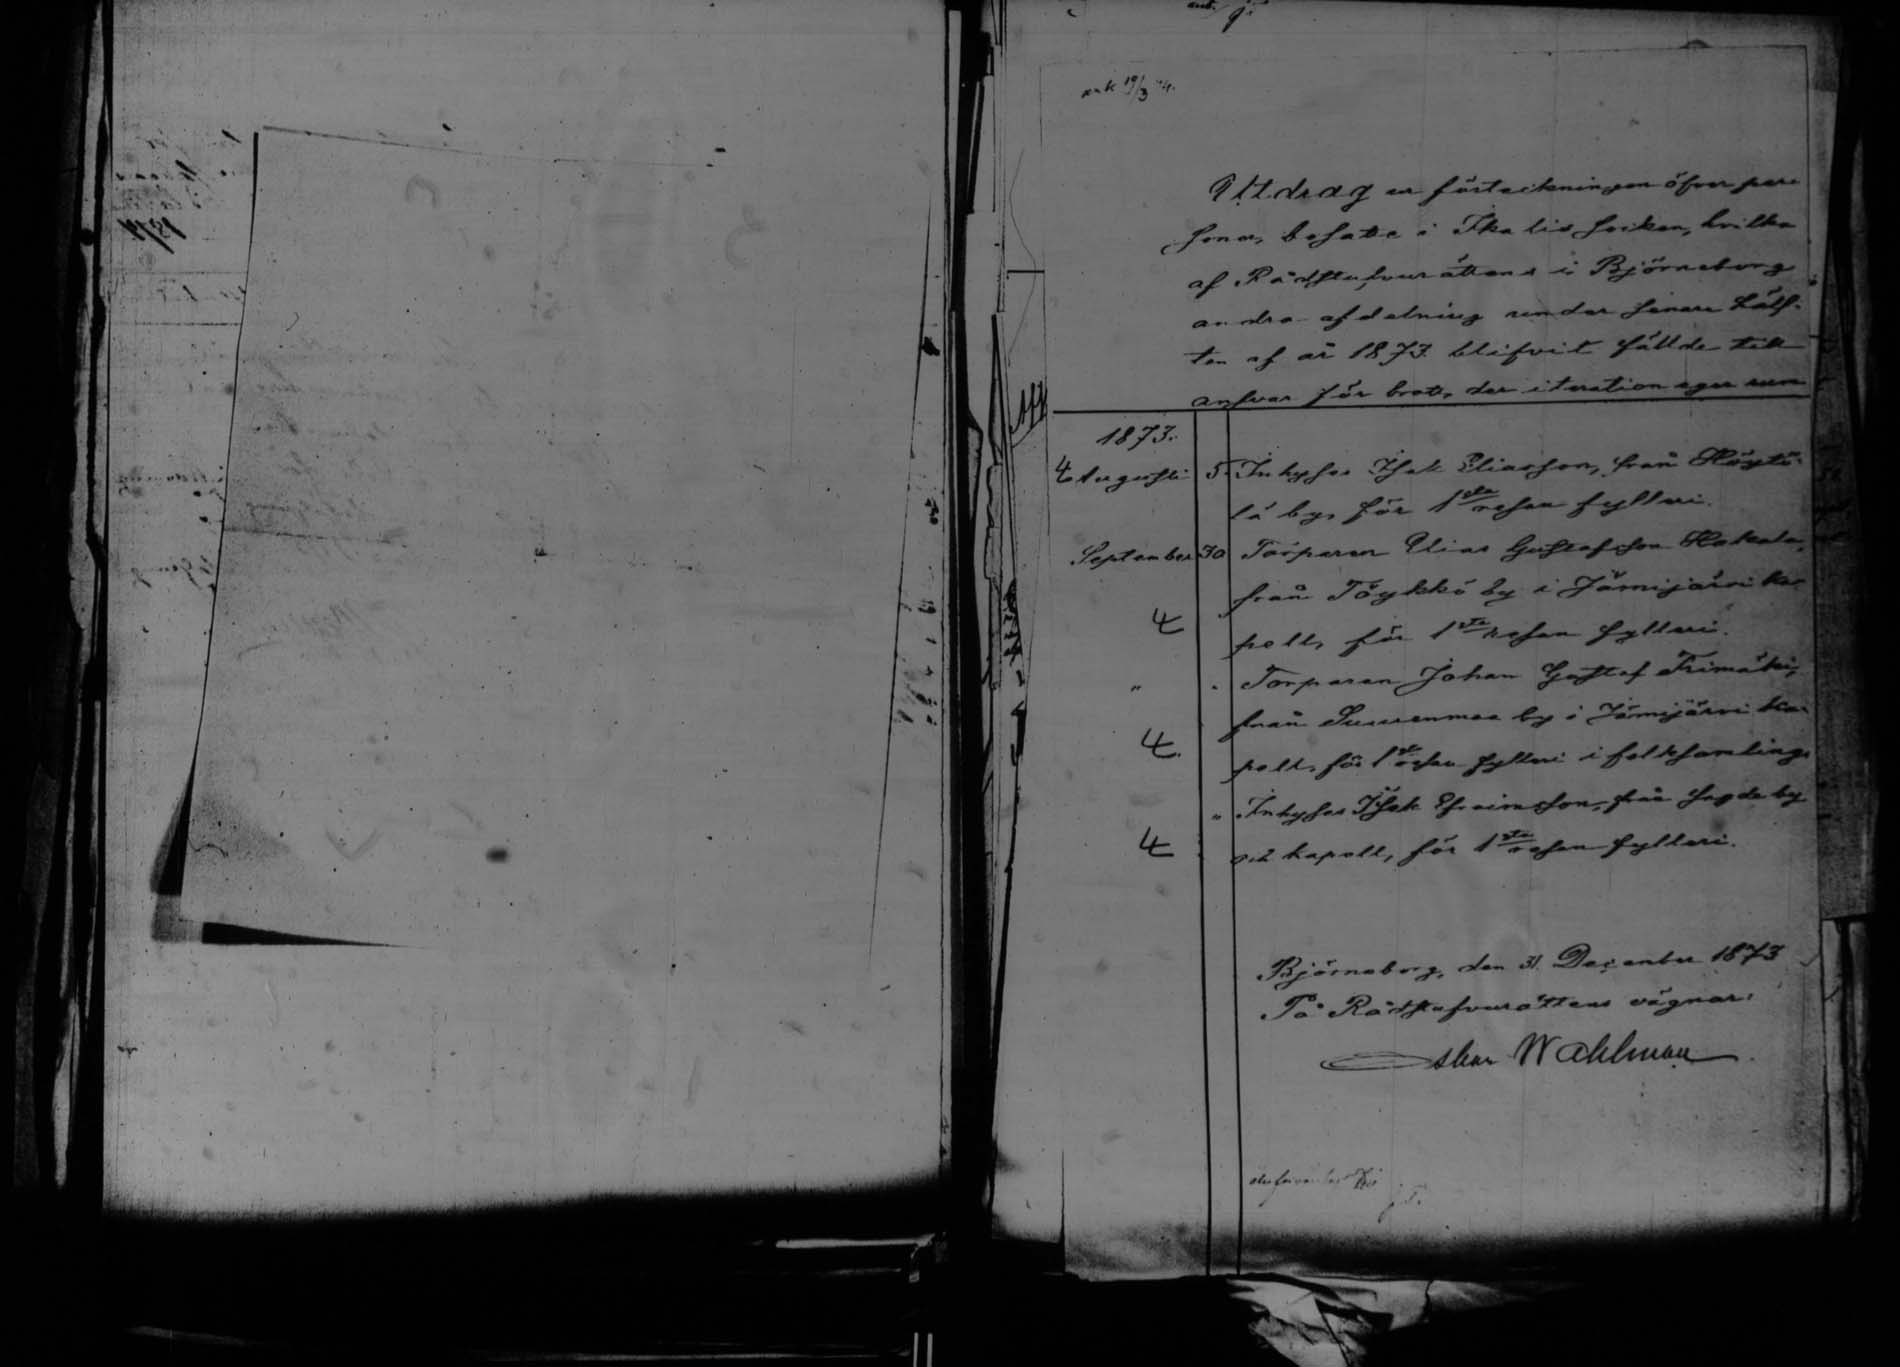 ank 19/3 74.
Utdrag ur förteckningen öfver per-
soner, bosatte i Ikalis socken, hvilka
af Rådstufvurättens i Björneborg
andra afdelning under senare hälf-
ten af år 1873 blifvit fällde till
ansvar för brott, der iteration eger rum
1873.
Augusti 5. Inhyses Isak Eliasson, från Höytö-
lä by, för 1sta resan fylleri.
September 30 Torparen Elias Gustafsson Hakala,
från Töykkö by i Jämijärvi ka-
pell, för 1sta resan fylleri.
" " Torparen Johan Gustaf Trimäki,
från Suurenmaa by i Jämijärvi ka-
pell, för 1sta resan fylleri i folksamling.
" Inhyses Isak Efraimsson, från sagde by
och kapell, för 1sta resan fylleri.
Björneborg, den 31 December 1873
På Rådstufvurättens vägnar:
Oskar Wahlman